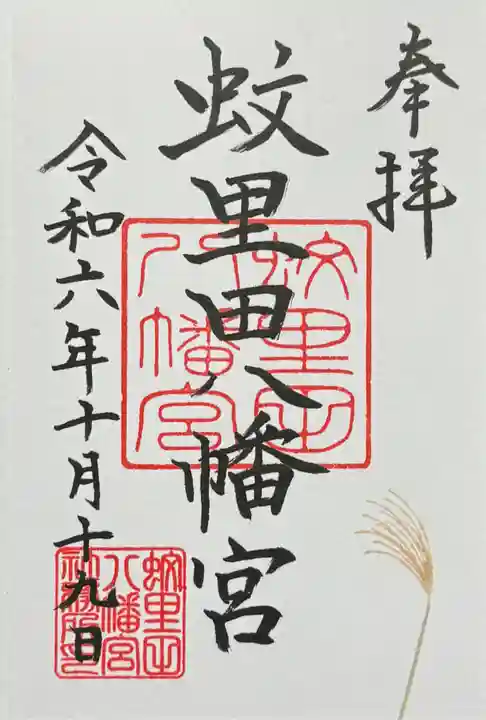 奉拝
蚊里田八幡宮
令和六年十月十九日
蚊里田
八幡宮
蚊里田
八幡宮
社務所印